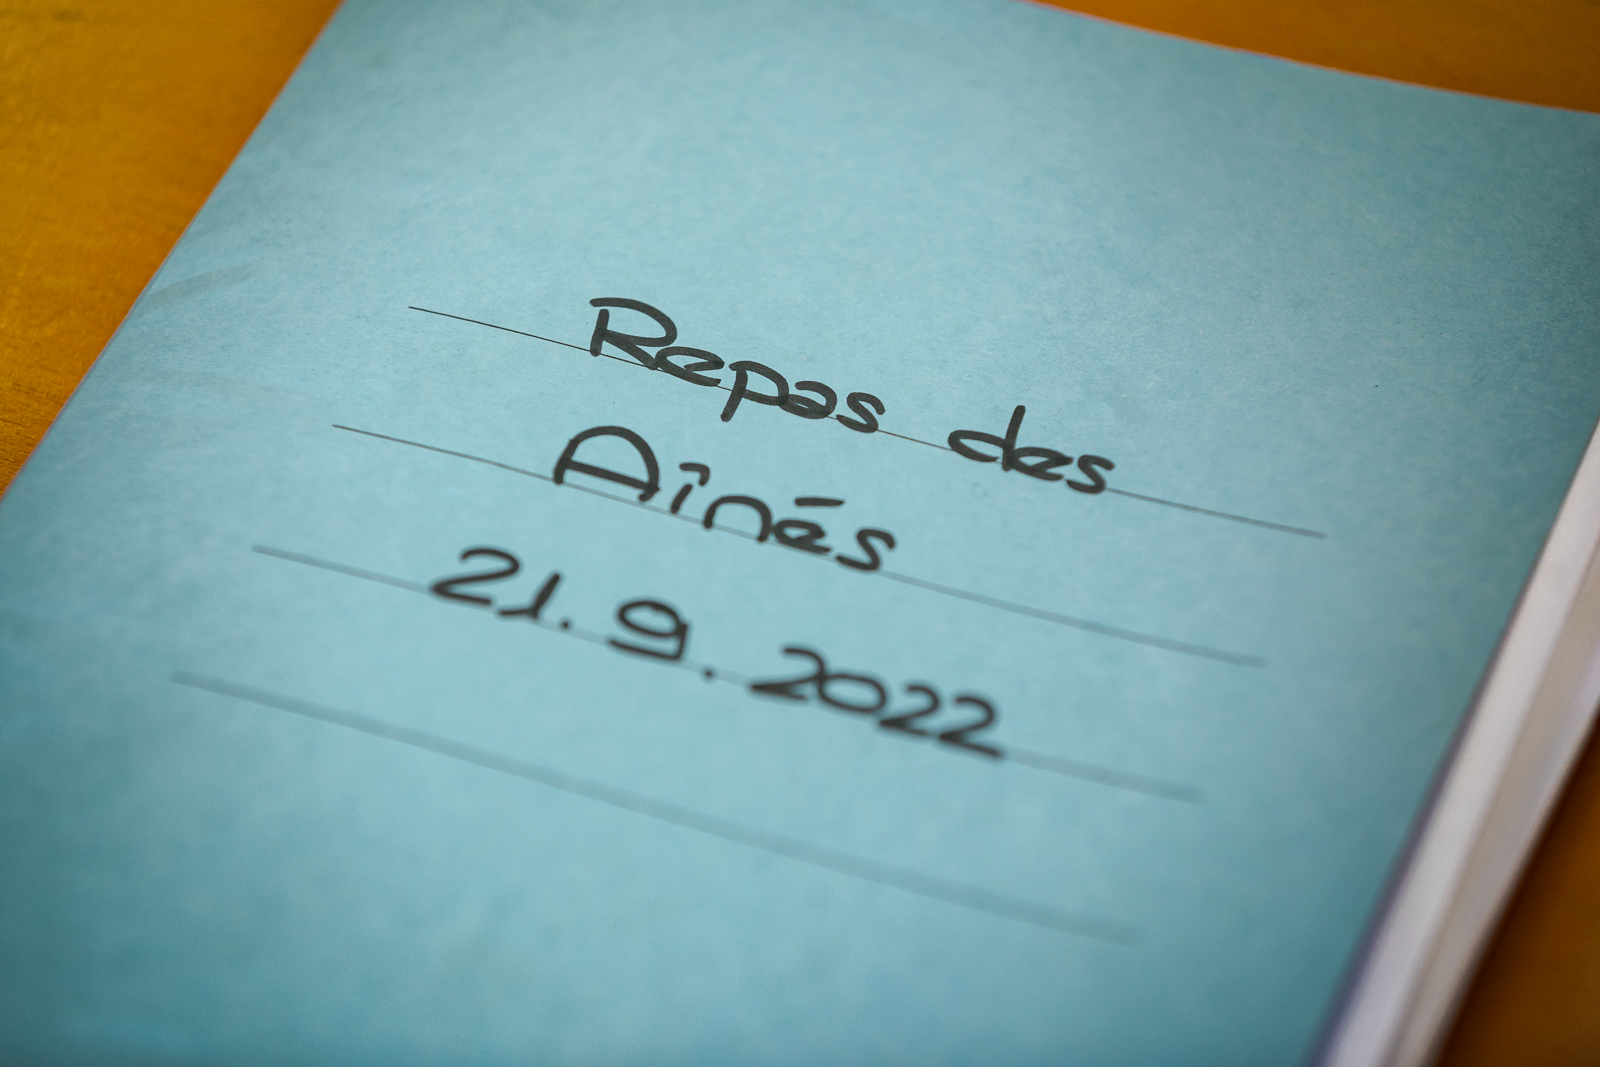 Repas des
Aînés
21.9.2022